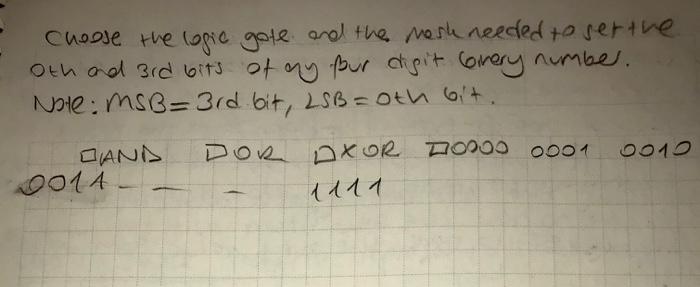 Choose the logic gate and the mask needed to set the
0th and 3rd bits of any four digit binary number.
Note: MSB = 3rd bit, LSB = 0th bit.
□AND □OR □XOR □0000 0001 0010
0011 - - - 1111